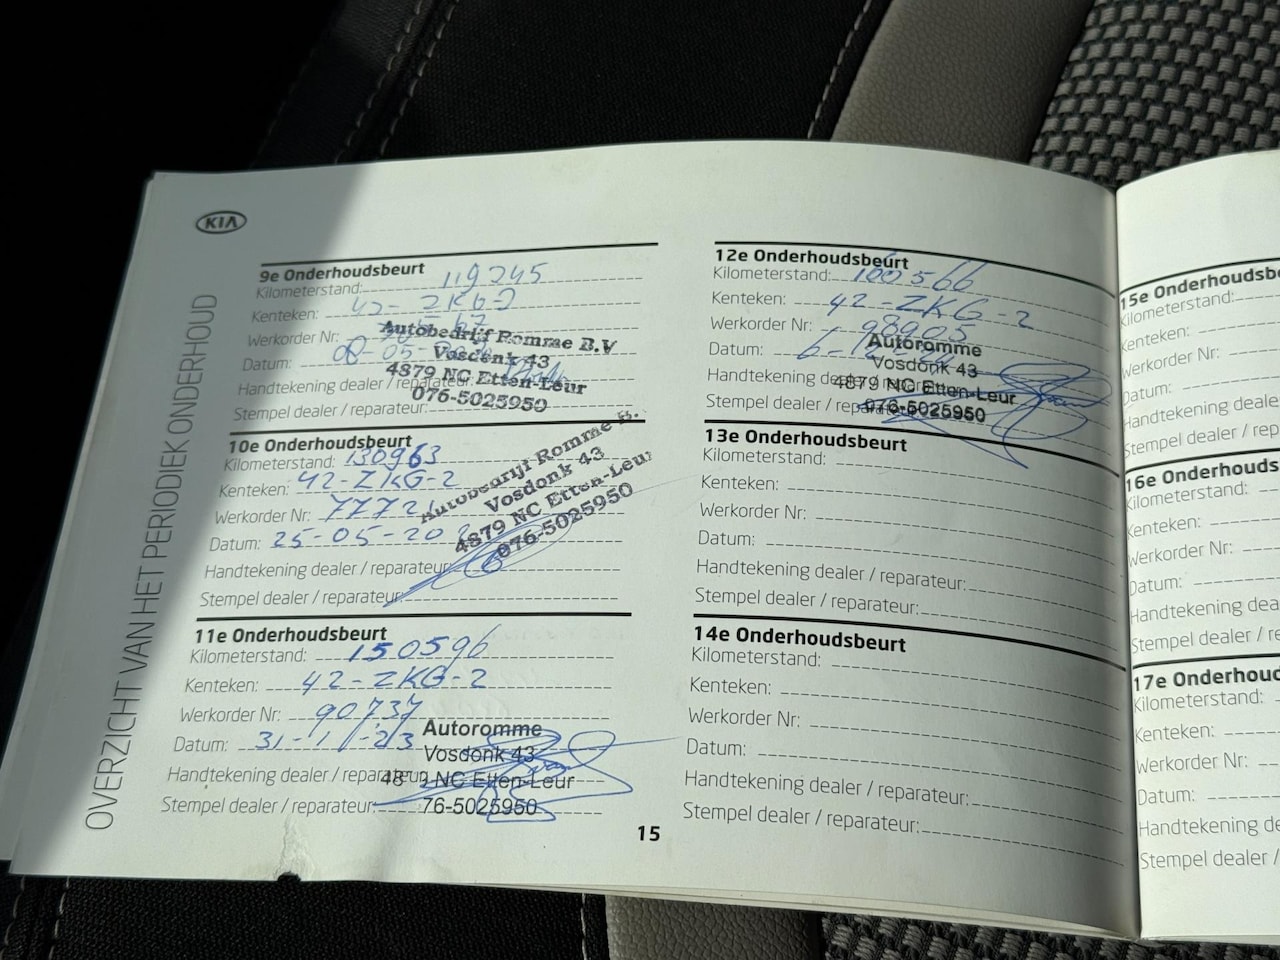 KIA
OVERZICHT VAN HET PERIODIEK ONDERHOUD
9e Onderhoudsbeurt
Kilometerstand: 119245
Kenteken: 42-ZKG-2
Werkorder Nr:
Datum:
Handtekening dealer / reparateur:
Stempel dealer / reparateur:
Autobedrijf Romme B.V
Vosdonk 43
4879 NC Etten-Leur
076-5025950
10e Onderhoudsbeurt
Kilometerstand: 130963
Kenteken: 42-ZKG-2
Werkorder Nr:
Datum: 25-05-20
Handtekening dealer / reparateur:
Stempel dealer / reparateur:
Autobedrijf Romme B.
Vosdonk 43
4879 NC Etten-Leur
076-5025950
11e Onderhoudsbeurt
Kilometerstand: 150596
Kenteken: 42-ZKG-2
Werkorder Nr: 90737
Datum: 31-1-23
Handtekening dealer / reparateur:
Stempel dealer / reparateur:
Autoromme
Vosdonk 43
NC Etten-Leur
76-5025950
12e Onderhoudsbeurt
Kilometerstand: 160566
Kenteken: 42-ZKG-2
Werkorder Nr: 98905
Datum:
Handtekening dealer / reparateur:
Stempel dealer / reparateur:
Autoromme
Vosdonk 43
4879 NC Etten-Leur
076-5025950
13e Onderhoudsbeurt
Kilometerstand:
Kenteken:
Werkorder Nr:
Datum:
Handtekening dealer / reparateur:
Stempel dealer / reparateur:
14e Onderhoudsbeurt
Kilometerstand:
Kenteken:
Werkorder Nr:
Datum:
Handtekening dealer / reparateur:
Stempel dealer / reparateur:
15
15e Onderhoudsb
Kilometerstand:
Kenteken:
Werkorder Nr:
Datum:
Handtekening deale
Stempel dealer / rep
16e Onderhouds
Kilometerstand:
Kenteken:
Werkorder Nr:
Datum:
Handtekening dea
Stempel dealer / r
17e Onderhoud
Kilometerstand:
Kenteken:
Werkorder Nr:
Datum:
Handtekening de
Stempel dealer /